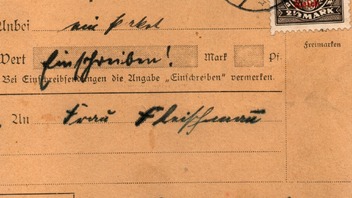 Anbei ein Paket
Wert Einschreiben! Mark Pf.
Bei Einschreibsendungen die Angabe "Einschreiben" vermerken.
Freimarken
An Frau Fleischmann
MARK